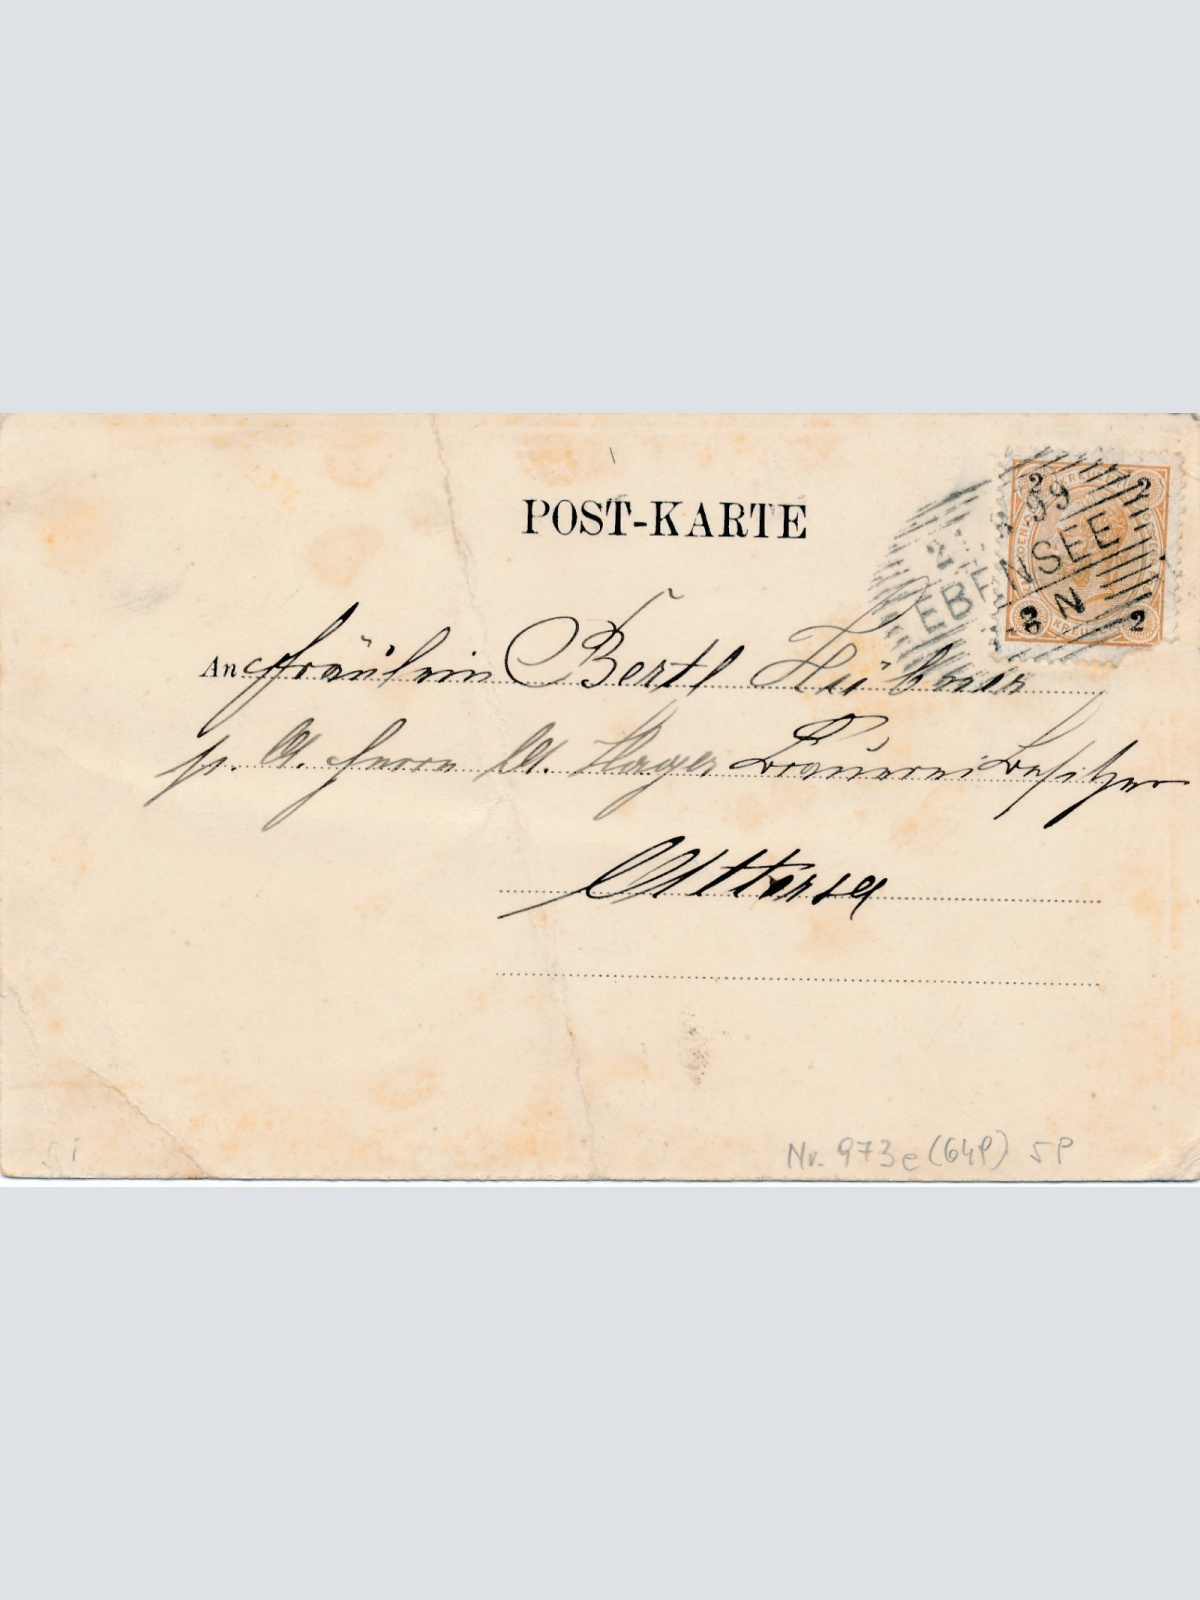 POST-KARTE
2 2
99
EBENSEE
2 2
KREUZ
An Fräulein Bertl Hübner
p. A. Herrn A. Hager Brauereibesitzer
Nr. 973e (64P) 5P